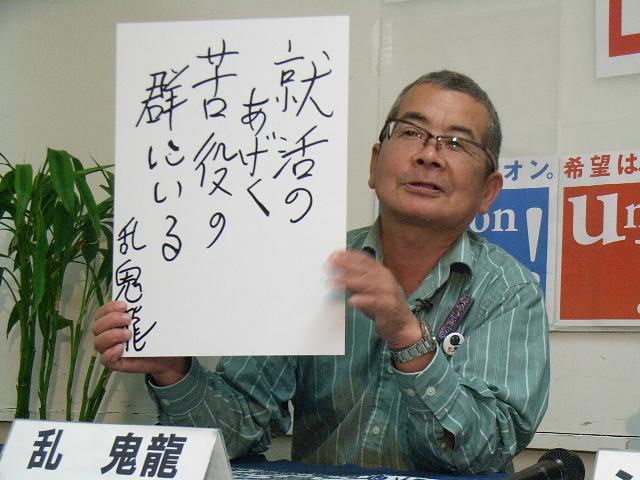 就活の
あげく
苦役の
群にいる
乱鬼龍
乱 鬼龍
オン。
on!
希望は
Un